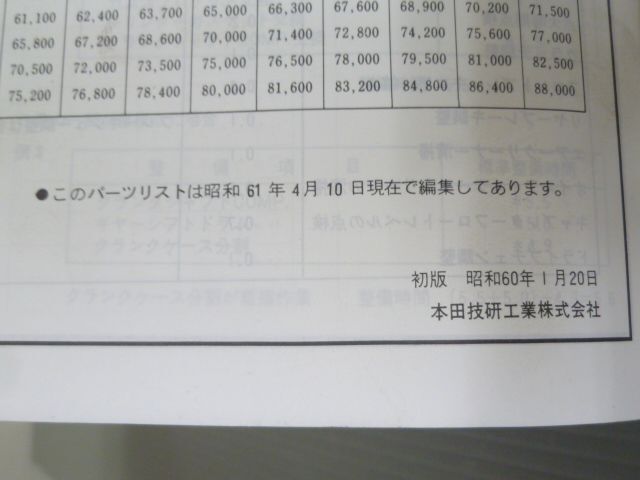 61,100 62,400 63,700 65,000 66,300 67,600 68,900 70,200 71,500
65,800 67,200 68,600 70,000 71,400 72,800 74,200 75,600 77,000
70,500 72,000 73,500 75,000 76,500 78,000 79,500 81,000 82,500
75,200 76,800 78,400 80,000 81,600 83,200 84,800 86,400 88,000
●このパーツリストは昭和 61 年 4 月 10 日現在で編集してあります。
初版 昭和60年1月20日
本田技研工業株式会社